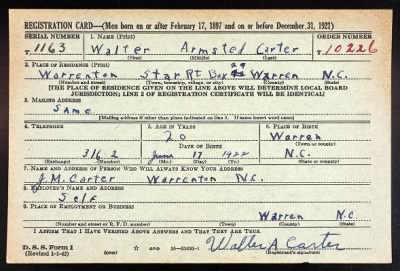 REGISTRATION CARD—(Men born on or after February 17, 1897 and on or before December 31, 1921)
SERIAL NUMBER 1. NAME (Print) ORDER NUMBER
T 1163 Walter Armsted Carter 10226
(First) (Middle) (Last)
2. PLACE OF RESIDENCE (Print)
Warrenton Star Rt Box 29 Warren N.C.
(Number and street) (Town, township, village, or city) (County) (State)
[THE PLACE OF RESIDENCE GIVEN ON THE LINE ABOVE WILL DETERMINE LOCAL BOARD
JURISDICTION; LINE 2 OF REGISTRATION CERTIFICATE WILL BE IDENTICAL]
3. MAILING ADDRESS
Same
[Mailing address if other than place indicated on line 2. If same insert word same]
4. TELEPHONE 5. AGE IN YEARS 6. PLACE OF BIRTH
20 Warren
DATE OF BIRTH (Town or county)
316.2 June 17 1922 N.C.
(Exchange) (Number) (Mo.) (Day) (Yr.) (State or country)
7. NAME AND ADDRESS OF PERSON WHO WILL ALWAYS KNOW YOUR ADDRESS
J.M. Carter Warrenton N.C.
8. EMPLOYER'S NAME AND ADDRESS
Self
9. PLACE OF EMPLOYMENT OR BUSINESS
Warren N.C.
(Number and street or R. F. D. number) (Town) (County) (State)
I AFFIRM THAT I HAVE VERIFIED ABOVE ANSWERS AND THAT THEY ARE TRUE.
D. S. S. Form 1
(Revised 1-1-42) GPO Walter A Carter
(Registrant's signature)